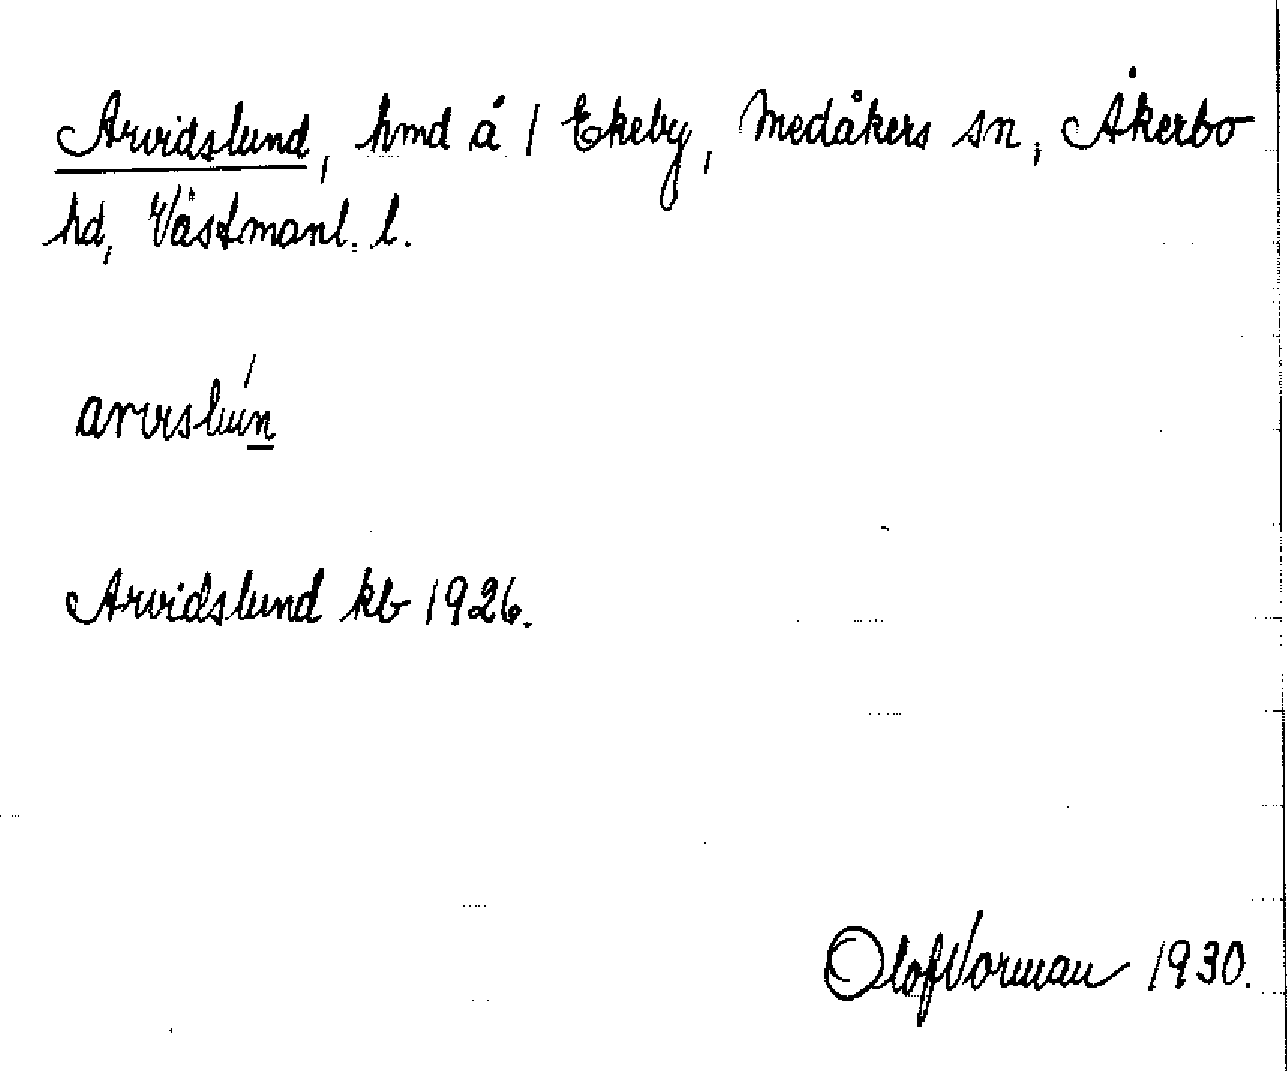 Arvidslund, hmd å 1 Ekeby, Medåkers sn, Åkerbo
hd, Västmanl. l.
arvislun
Arvidslund kb 1926.
Olof Vorman 1930.